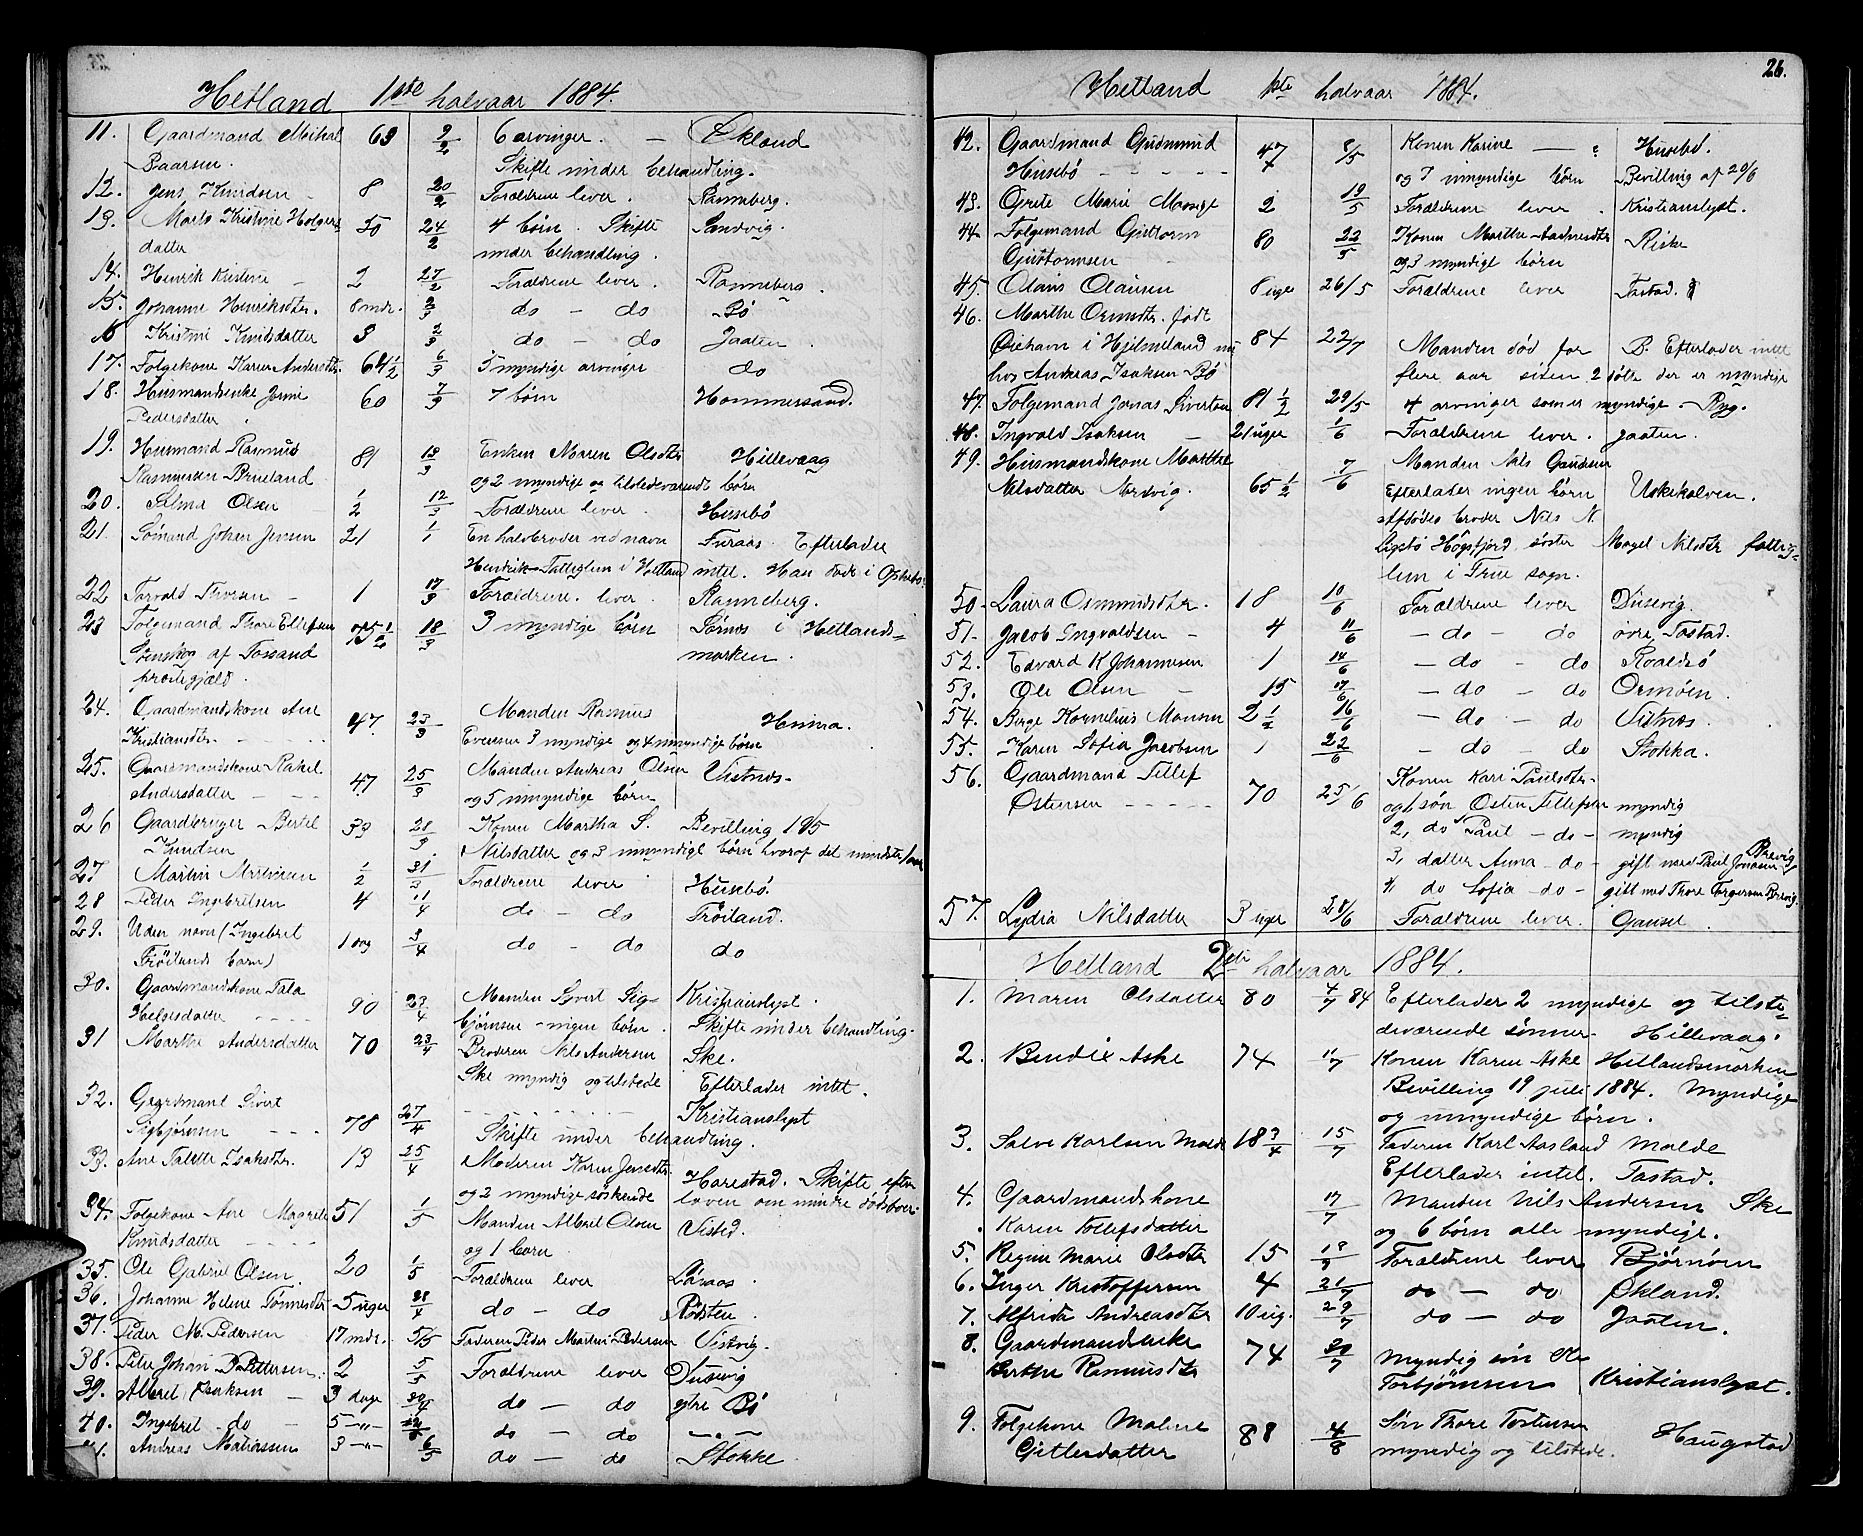 Hetland 1ste halvaar 1884.
11. Gaardmand Mikal 63 2/2 6 arvinger. — Økland
Baarsen. Skifte under behandling.
12. Jens Knudsen 8 20/2 Forældrene lever. Ranneberg.
13. Marta Kristine Holgers 50 24/2 4 børn. Skifte Sandvig.
datter under behandling.
14. Henrik 2 27/2 Forældrene lever. Ranneberg.
15. Johanne Henriksdtr. 8 mdr. 2/3 do — do Bø
16 Kristine Knudsdatter 3 2/3 do — do Jaaten.
17. Følgekone Karen Andersdtr. 64 1/2 6/3 5 myndige arvinger do
18. Husmandsenke 60 7/3 7 børn Hommersand.
Pedersdatter.
19. Husmand Rasmus 81 13/3 Enken Maren Olsdtr Hillevaag
Rasmussen Brueland og 2 myndige og tilstedeværende børn
20. Selma Olsen 1/2 12/3 Forældrene lever. Husebø
21. Sømand Johan Jensen 21 1/1 En halvbroder ved navn Furaas. Efterlader
Henrik Fattiglem i Hetland intet. Han døde i
22 Torvald 1 17/3 Forældrene lever. Ranneberg.
23 Følgemand Thore Ellefsen 75 1/2 18/3 3 myndige børn Sørnes i Hetlands-
af Fossand marken.
præstegjæld.
24. Gaardmandskone Ane 47. 23/3 Manden Rasmus Hinna.
Kristiansdtr. 3 myndige og 4 umyndige børn
25. Gaardmandskone Rakel 47 25/3 Manden Andreas Olsen Vistnes.
Andersdatter og 5 umyndige børn
26 Gaardbruger Bertel 39 28/3 Konen Martha S. Bevilling 19/5
Knudsen Nilsdatter og 3 umyndige børn hvoraf det mindste
27. Martin 1/2 31/3 Forældrene lever Husebø.
28 Peder Ingebretsen 4 11/4 do — do Frøiland.
29. Uden navn (Ingebret 1 3/4 do — do do
Frøilands barn)
30. Gaardmandskone Tala 90 23/4 Manden Sivert Sig- Kristianslyst.
Helgesdatter bjørnsen — ingen børn. Skifte under behandling.
31 Marthe Andersdatter 70 23/4 Broderen Nils Andersen Ske.
Ske myndig og tilstede Efterlader intet.
32. Gaardmand Sivert 78 27/4 Kristianslyst
Sigbjørnsen Skifte under behandling.
33. Ane Isaksdtr. 13 25/4 Moderen Karen Jensdtr. Harestad. Skifte efter
og 2 myndige søskende loven om mindre dødsboer.
34. Følgekone Ane Magrete 51 1/5 Manden Albret Olsen Visted.
Knudsdatter og 1 barn.
35. Ole Gabriel Olsen. 20 1/5 Forældrene lever
36. Johanne Helene Tønnesdtr 5 uger 28/4 do — do Rosten.
37. Peder M. Pedersen 17 mdr. 5/5 Faderen Peder Martin Pedersen Vistvig.
38. Peter Johan B. Pettersen. 2 5/5 Forældrene lever Dusevig
39. Albret Isaksen 3 dage 30/4 do — do ytre Bø
40. Ingebret do 5 —"— do — do —"—
41. Andreas Matiassen 3 —"— 6/5 do — do Stokke
26.
Hetland 1ste halvaar 1884.
42. Gaardmand Gudmund 47 8/5 Konen Karine — : Husebø.
Husebø og 7 umyndige børn Bevilling af 20/6
43. Grete Marie Mauge 2 19/5 Forældrene lever. Kristianslyst.
44. Følgemand Guttorm 80 22/5 Konen Marthe Riske
Guttormsen og 3 myndige børn
45. Olaus Olausen 8 uger 26/5 Forældrene lever Tastad.
46. Marthe Ormsdtr. født
i Hjelmeland nu 84 22/7 Manden død for B. Efterlader intet
hos Andreas Isaksen Bø flere aar siden 2 døtre der er myndige
47. Følgemand Jonas Sivertsen 81 1/2 29/5 4 arvinger som er myndige. Ryg.
48. Ingvald Isaksen 21 uger 1/6 Forældrene lever. Jaaten.
49. Husmandskone Marthe 65 1/2 7/6 Manden Nils Gaudesen
Nilsdatter Nordvig. Efterlader ingen børn Uskekalven.
Afdødes broder Nils N.
Høgsfjord, søster Magel Nilsdtr fattig-
lem i Time sogn.
50. Laura Osmundsdtr. 18 10/6 Forældrene lever Dusevig.
51. Jacob Ingvaldsen 4 11/6 — do — do øvre Tastad.
52. Edvard K Johannesen 1 14/6 — do — do Roaldsø
53. Ole Olsen 15 17/6 — do — do Ormøen.
54. Børge Kornelius Monsen 2 1/2 16/6 — do — do Vistnes.
55. Karen Sofia Jacobsen 1 22/6 — do — do Stokka.
56. Gaardmand Tellef 70 25/6 Konen Kari Paulsdtr.
Østensen og 1, søn Osten Tellefsen myndig
2, do Paul — do — myndig
3, datter Anna — do — gift med Paul Jonasen Brevig
4, do Sofia — do — gift med Thore Torgersen Brevig.
57. Lydia Nilsdatter 3 uger 28/6 Forældrene lever. Gausel.
Hetland 2det halvaar 1884.
1. Maren Olsdatter 80 4/7 84 Efterlader 2 myndige og tilste-
deværende sønner. Hillevaag.
2. Bendix Aske 74 11/7 Konen Karen Aske Hetlandsmarken
Bevilling 19 juli 1884. Myndige
og umyndige børn.
3. Salve Karlsen Malde 18 3/4 15/7 Faderen Karl Aasland Malde
Efterlader intet. Tastad.
4. Gaardmandskone 17/7 Manden Nils Andersen Ske
Karen Tollefsdatter og 6 børn alle myndige.
5. Regine Marie Olsdtr 15 Forældrene lever Bjørnøen
6. Inger Kristoffersen 4 21/7 do — do Økland.
7. Alfrida Andreasdtr 10 ug. 29/7 do — do Jaaten.
8. Gaardmandsenke 74 30/7 Myndig søn Ole
Berthe Rasmusdtr Torbjørnsen Kristianslyst.
9. Følgekone Malene 88 4/8 Søn Thore Tostensen Haugstad
Gitlesdatter myndig og tilstede.